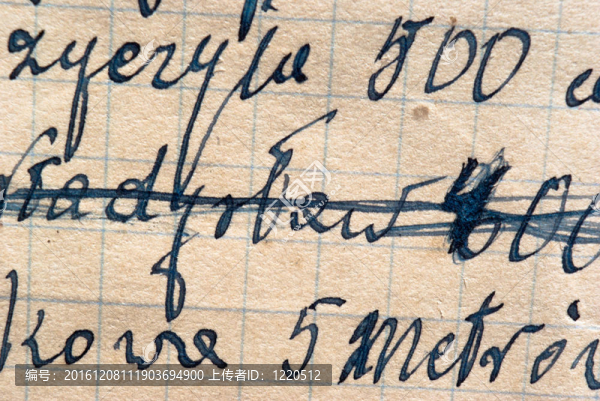 500
ładysław 00
kowe 5 metrów
编号: 20161208111903694900 上传者ID: 1220512